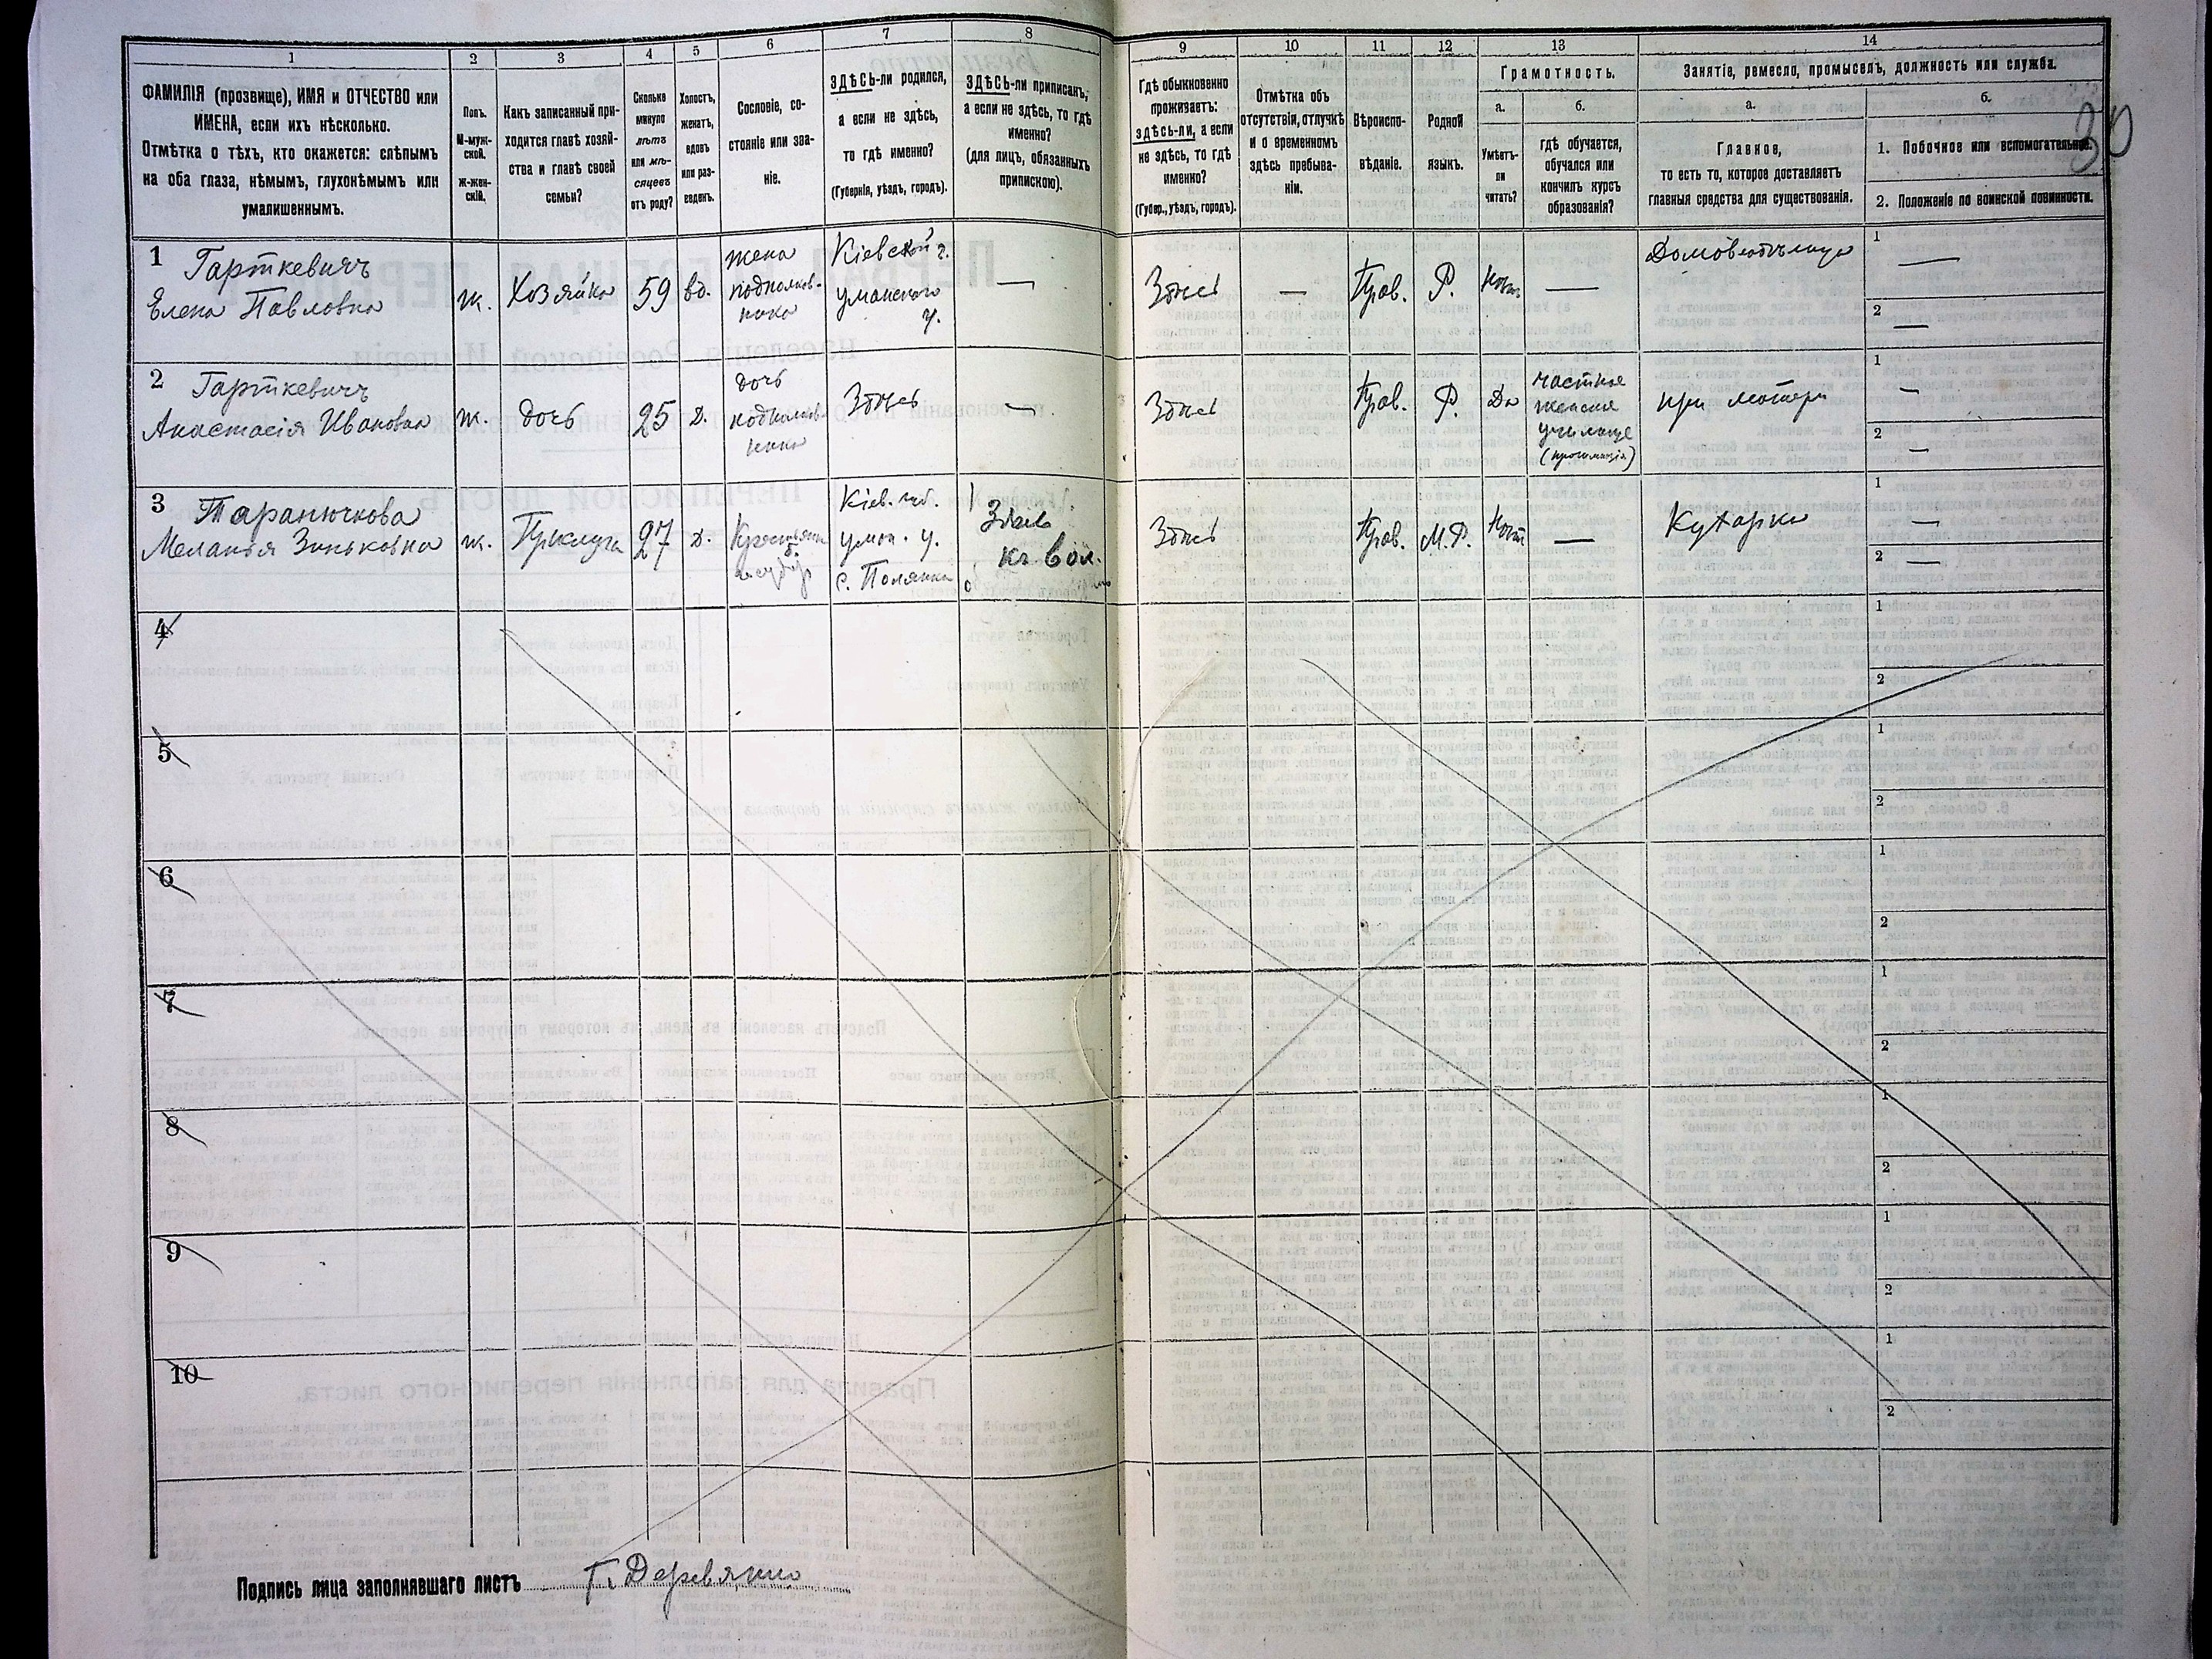 30
1 2 3 4 5 6 7 8 9 10 11 12 13 14
ФАМИЛІЯ (прозвище), ИМЯ и ОТЧЕСТВО или
ИМЕНА, если ихъ нѣсколько.
Отмѣтка о тѣхъ, кто окажется: слѣпымъ
на оба глаза, нѣмымъ, глухонѣмымъ или
умалишеннымъ.
Полъ.
М-муж-
ской.
ж-жен-
скій.
Какъ записанный при-
ходится главѣ хозяй-
ства и главѣ своей
семьи?
Сколько
минуло
лѣтъ
или мѣ-
сяцевъ
отъ роду?
Холостъ,
женатъ,
вдовъ
или раз-
веденъ.
Сословіе, со-
стояніе или зва-
ніе.
ЗДѢСЬ-ли родился,
а если не здѣсь,
то гдѣ именно?
(Губернія, уѣздъ, городъ).
ЗДѢСЬ-ли приписанъ,
а если не здѣсь, то гдѣ
именно?
(для лицъ, обязанныхъ
припискою).
Гдѣ обыкновенно
проживаетъ:
здѣсь-ли, а если
не здѣсь, то гдѣ
именно?
(Губер., уѣздъ, городъ).
Отмѣтка объ
отсутствіи, отлучкѣ
и о временномъ
здѣсь пребыва-
ніи.
Вѣроиспо-
вѣданіе.
Родной
языкъ.
Грамотность.
а.
Умѣетъ-
ли
читать?
б.
гдѣ обучается,
обучался или
кончилъ курсъ
образованія?
Занятіе, ремесло, промыселъ, должность или служба.
а.
Главное,
то есть то, которое доставляетъ
главныя средства для существованія.
б.
1. Побочное или вспомогательное.
2. Положеніе по воинской повинности.
1
Гарткевичъ
Елена Павловна
ж.
Хозяйка
59
вд.
жена
подполков-
ника
Кіевской г.
уманскаго
у.
—
Здѣсь
—
Прав.
Р.
Нѣтъ
—
Домовладѣлица
1 —
2 —
2
Гарткевичъ
Анастасія Ивановна
ж.
дочь
25
д.
дочь
подполков-
ника
Здѣсь
—
Здѣсь
Прав.
Р.
Да
частное
женское
училище
(прогимназія)
при матери
1 —
2 —
3
Таранючкова
Меланья Зиньковна
ж.
Прислуга
27
д.
Кіев. губ.
уман. у.
с. Полянка
вол.
Здѣсь
Прав.
М.Р.
Нѣтъ
—
Кухарка
1 —
2 —
4
1
2
5
1
2
6
1
2
7
1
2
8
1
2
9
1
2
10
1
2
Подпись лица заполнявшаго листъ Г. Деревянко